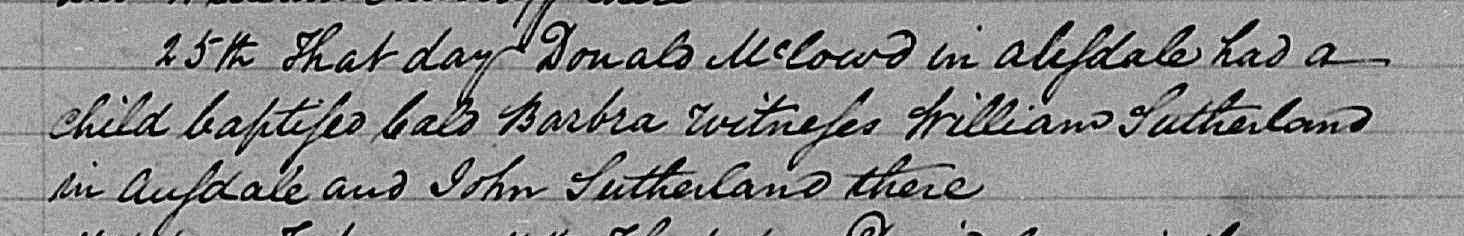 25th That day Donald McCowd in Alesdale had a
child baptised cald Barbra Witneses William Sutherland
in Ausdale and John Sutherland there